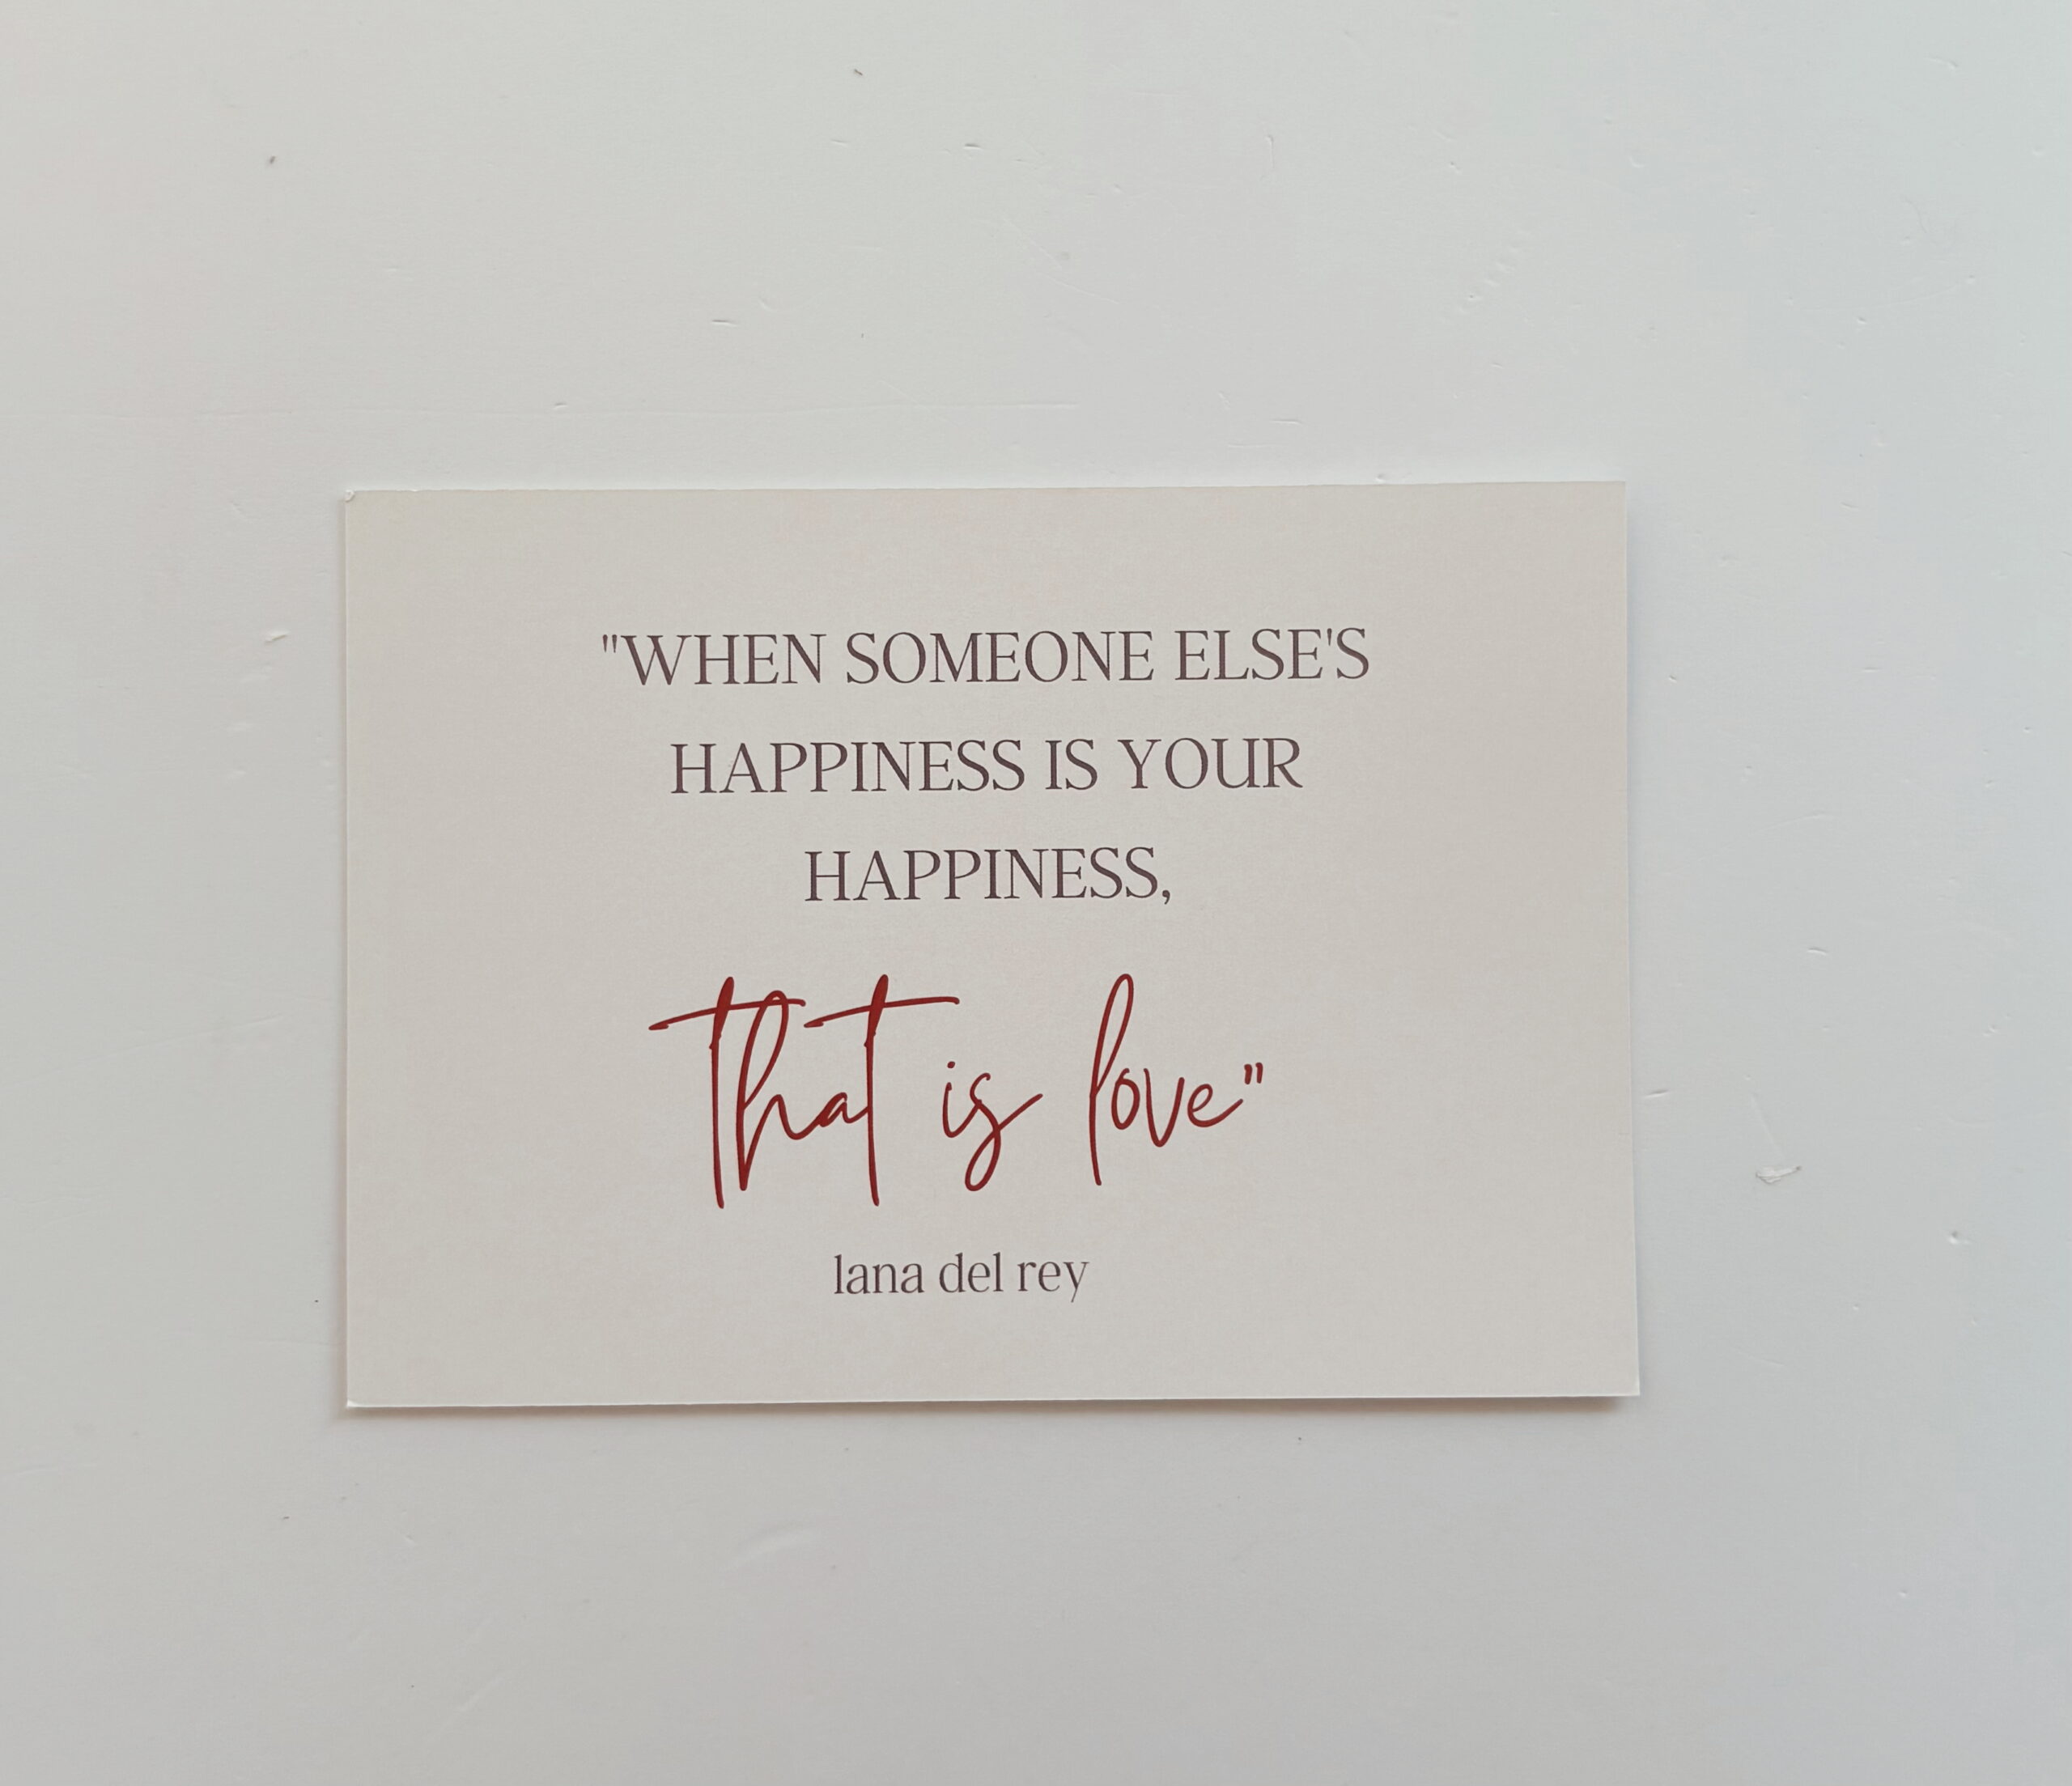 "WHEN SOMEONE ELSE'S
HAPPINESS IS YOUR
HAPPINESS,
that is love"
lana del rey